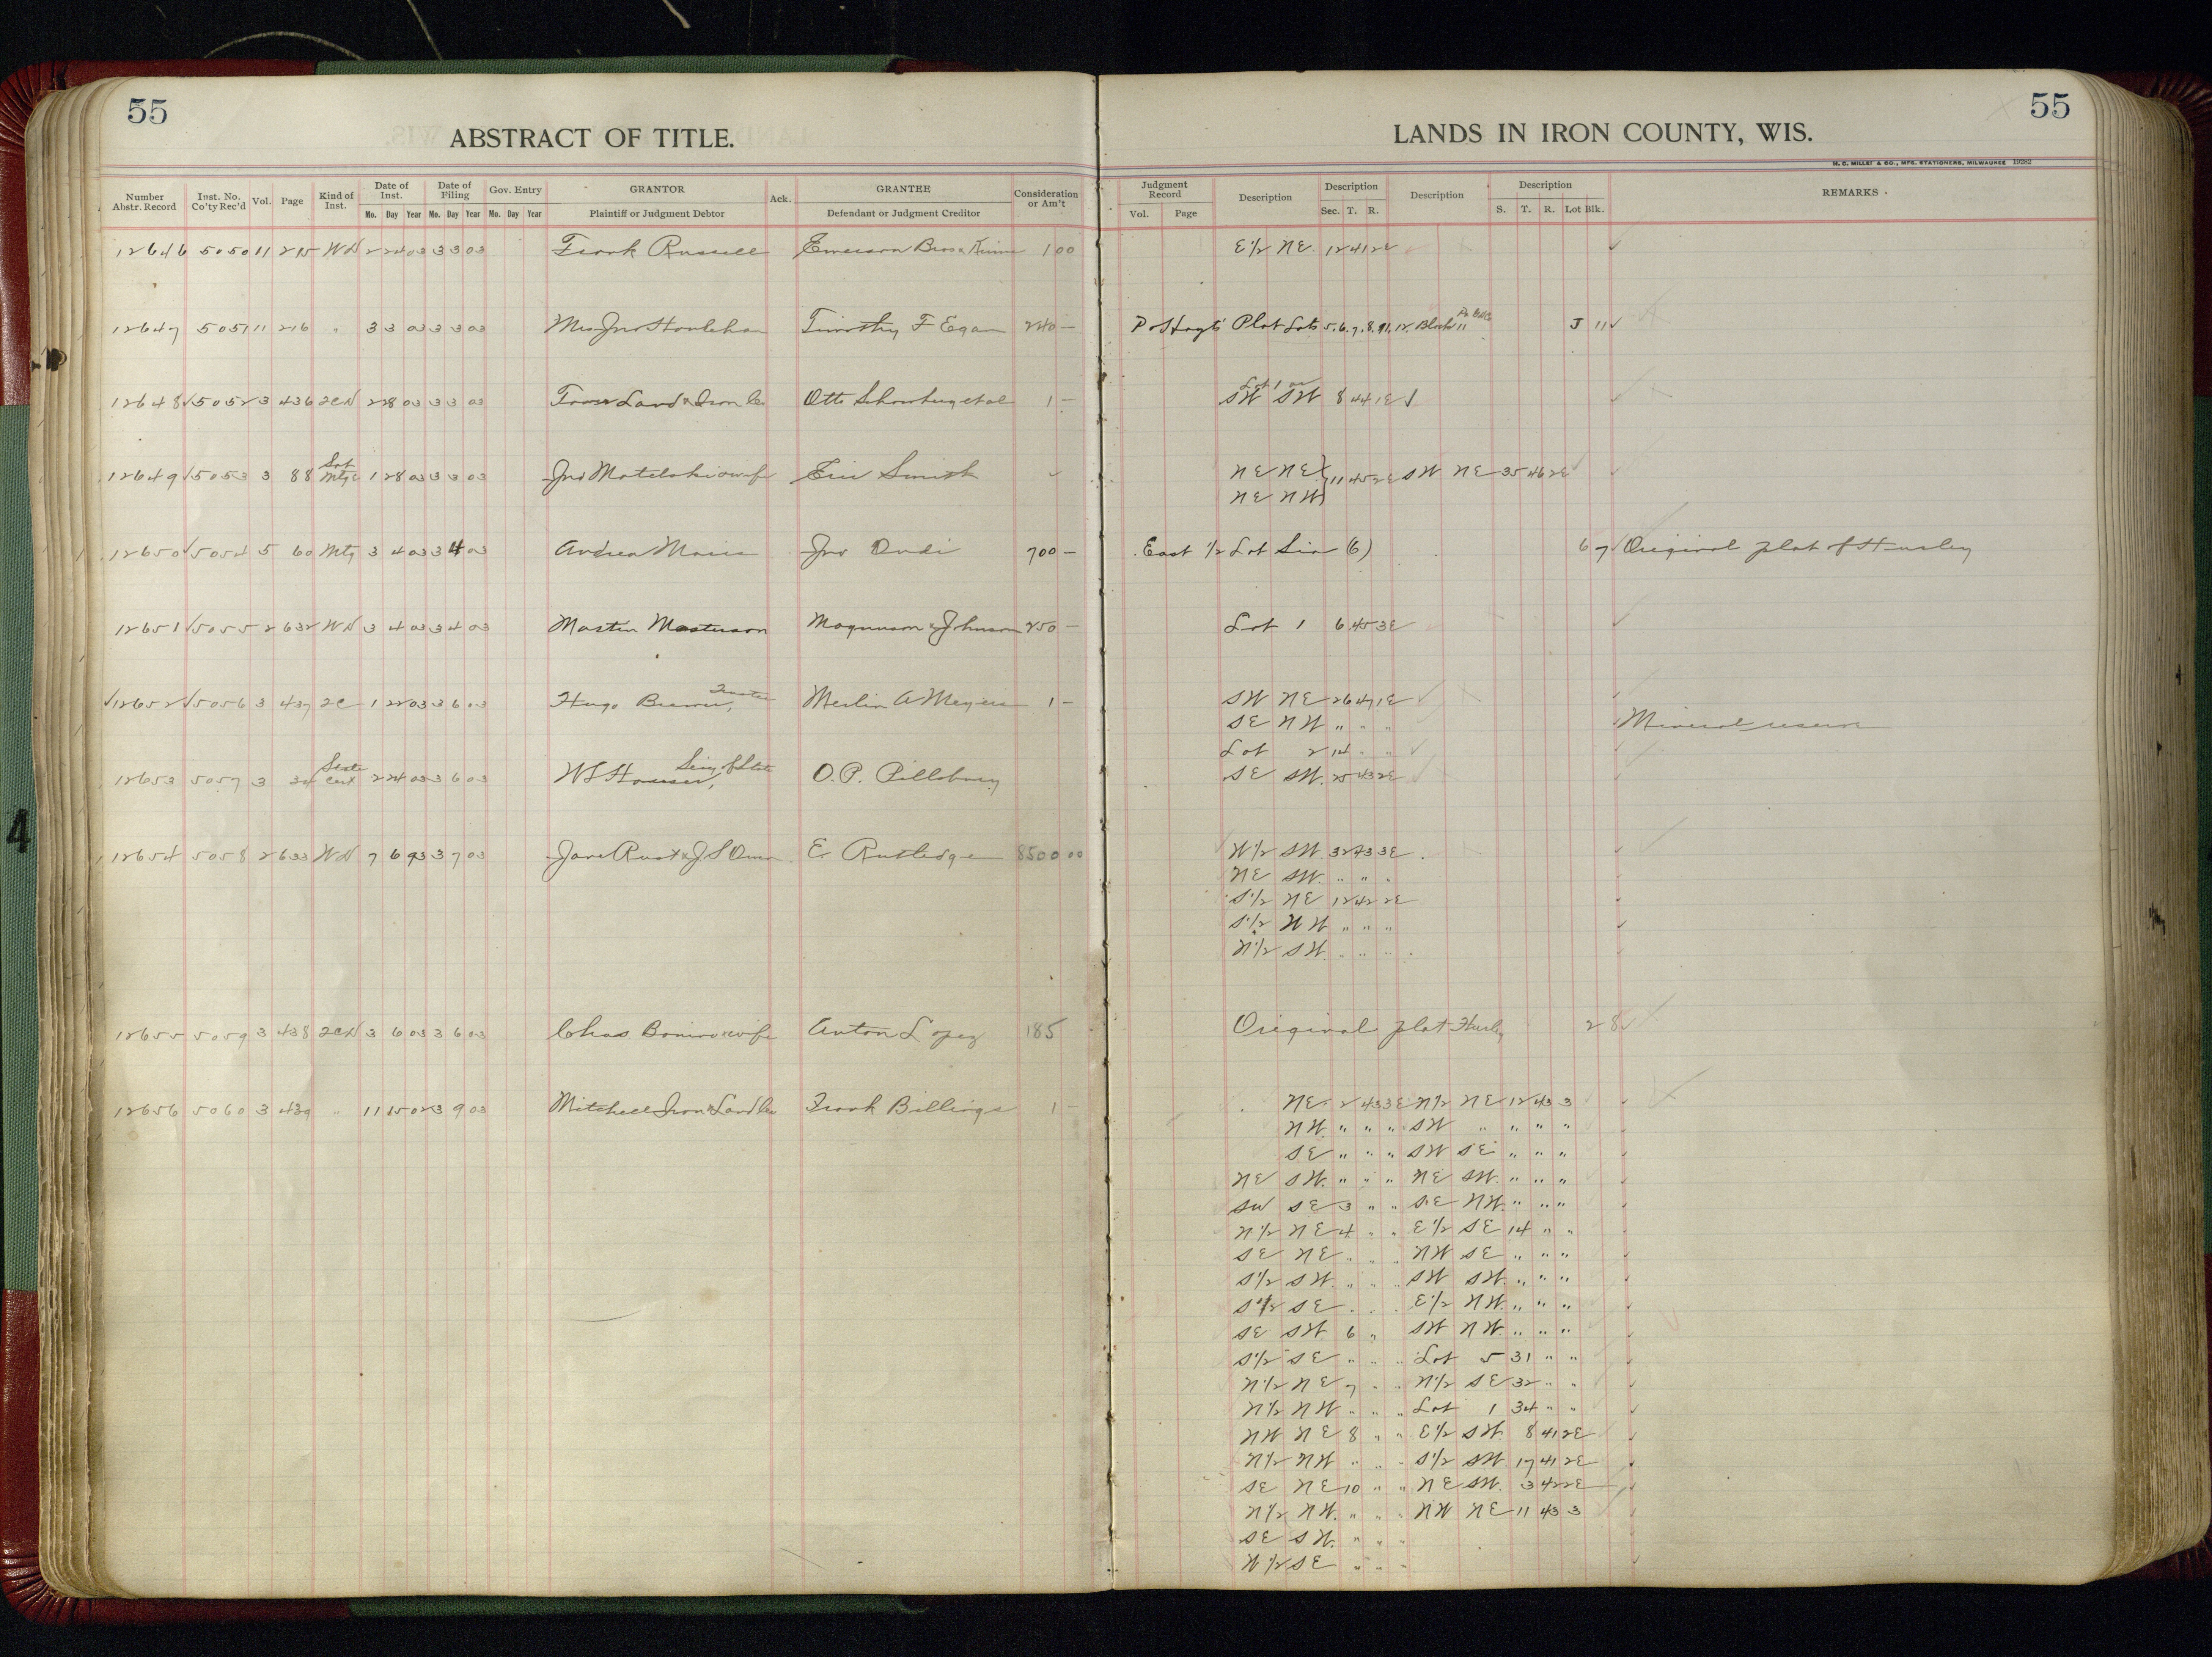 55
ABSTRACT OF TITLE.
LANDS IN IRON COUNTY, WIS.
55
H. C. MILLER & CO., MFG. STATIONERS, MILWAUKEE 19282
Number Abstr. Record Inst. No. Co'ty Rec'd Vol. Page Kind of Inst. Date of Inst. Mo. Day Year Date of Filing Mo. Day Year Gov. Entry Mo. Day Year GRANTOR Plaintiff or Judgment Debtor Ack. GRANTEE Defendant or Judgment Creditor Consideration or Am't
Judgment Record Vol. Page Description Description Sec. T. R. Description Description S. T. R. Lot Blk. REMARKS
12646 5050 11 215 WD 2 24 03 3 3 03 Frank Russell Emerson Bros & 1 00 E 1/2 NE 12 41 2E
12647 5051 11 216 " 3 3 03 3 3 03 Mrs Jno Houlehan Timothy F Egan 240 – P Hoyt's Plat Lots 5. 6. 7. 8. 11. 12. Block 11 J 11
12648 5052 3 436 2CD 2 28 03 3 3 03 Land & Iron Co Otto et al 1 – Lot 1 or
SW SW 8 44 1E
12649 5053 3 88 Sat Mtg 1 28 03 3 3 03 Jno & wife Eric Smith NE NE 11 45 2E SW NE 35 46 2E
NE NW
12650 5054 5 60 Mtg 3 4 03 3 4 03 Andrea Jno 700 – East 1/2 Lot Six (6) 6 7 Original plat of Hurley
12651 5055 2 632 WD 3 4 03 3 4 03 Martin Masterson Magnuson & Johnson 250 – Lot 1 6 45 3E
12652 5056 3 437 2C 1 22 03 3 6 03 Hugo Trustee Merlin A Meyers 1 – SW NE 26 47 1E
SE NW " " " Mineral reserve
Lot 2 14 " "
12653 5057 3 34 State Cert 2 24 03 3 6 03 WL Houser, Secy of State O. P. Pillsbury SE SW. 25 43 2E
12654 5058 2 633 WD 7 6 93 3 7 03 Jane Rust & J S Owen E Rutledge 8500 00 W 1/2 SW 32 43 3E
NE SW. " " "
S 1/2 NE 12 42 2E
S 1/2 NW " " "
N 1/2 SW. " " "
12655 5059 3 438 2CD 3 6 03 3 6 03 Chas. Bonino & wife Anton Lopez 185 Original plat Hurley 2 8
12656 5060 3 439 " 11 15 02 3 9 03 Mitchell Iron & Land Co Frank Billings 1 – NE 2 43 3E N 1/2 NE 12 43 3
NW. " " " SW " " " "
SE " " " SW SE " " "
NE SW. " " " NE SW. " " "
SW SE 3 " " SE NW. " " "
N 1/2 NE 4 " " E 1/2 SE 14 " "
SE NE " " " NW SE " " "
S 1/2 SW. " " " SW SW. " " "
S 1/2 SE " " " E 1/2 NW. " " "
SE SW 6 " SW NW. " " "
S 1/2 SE " " " Lot 5 31 " "
N 1/2 NE 7 " " N 1/2 SE 32 " "
N 1/2 NW " " " Lot 1 34 " "
NW NE 8 " " E 1/2 SW. 8 41 2E
N 1/2 NW " " " S 1/2 SW. 17 41 2E
SE NE 10 " " NE SW. 3 42 2E
N 1/2 NW. " " " NW NE 11 43 3
SE SW. " " "
W 1/2 SE " " "